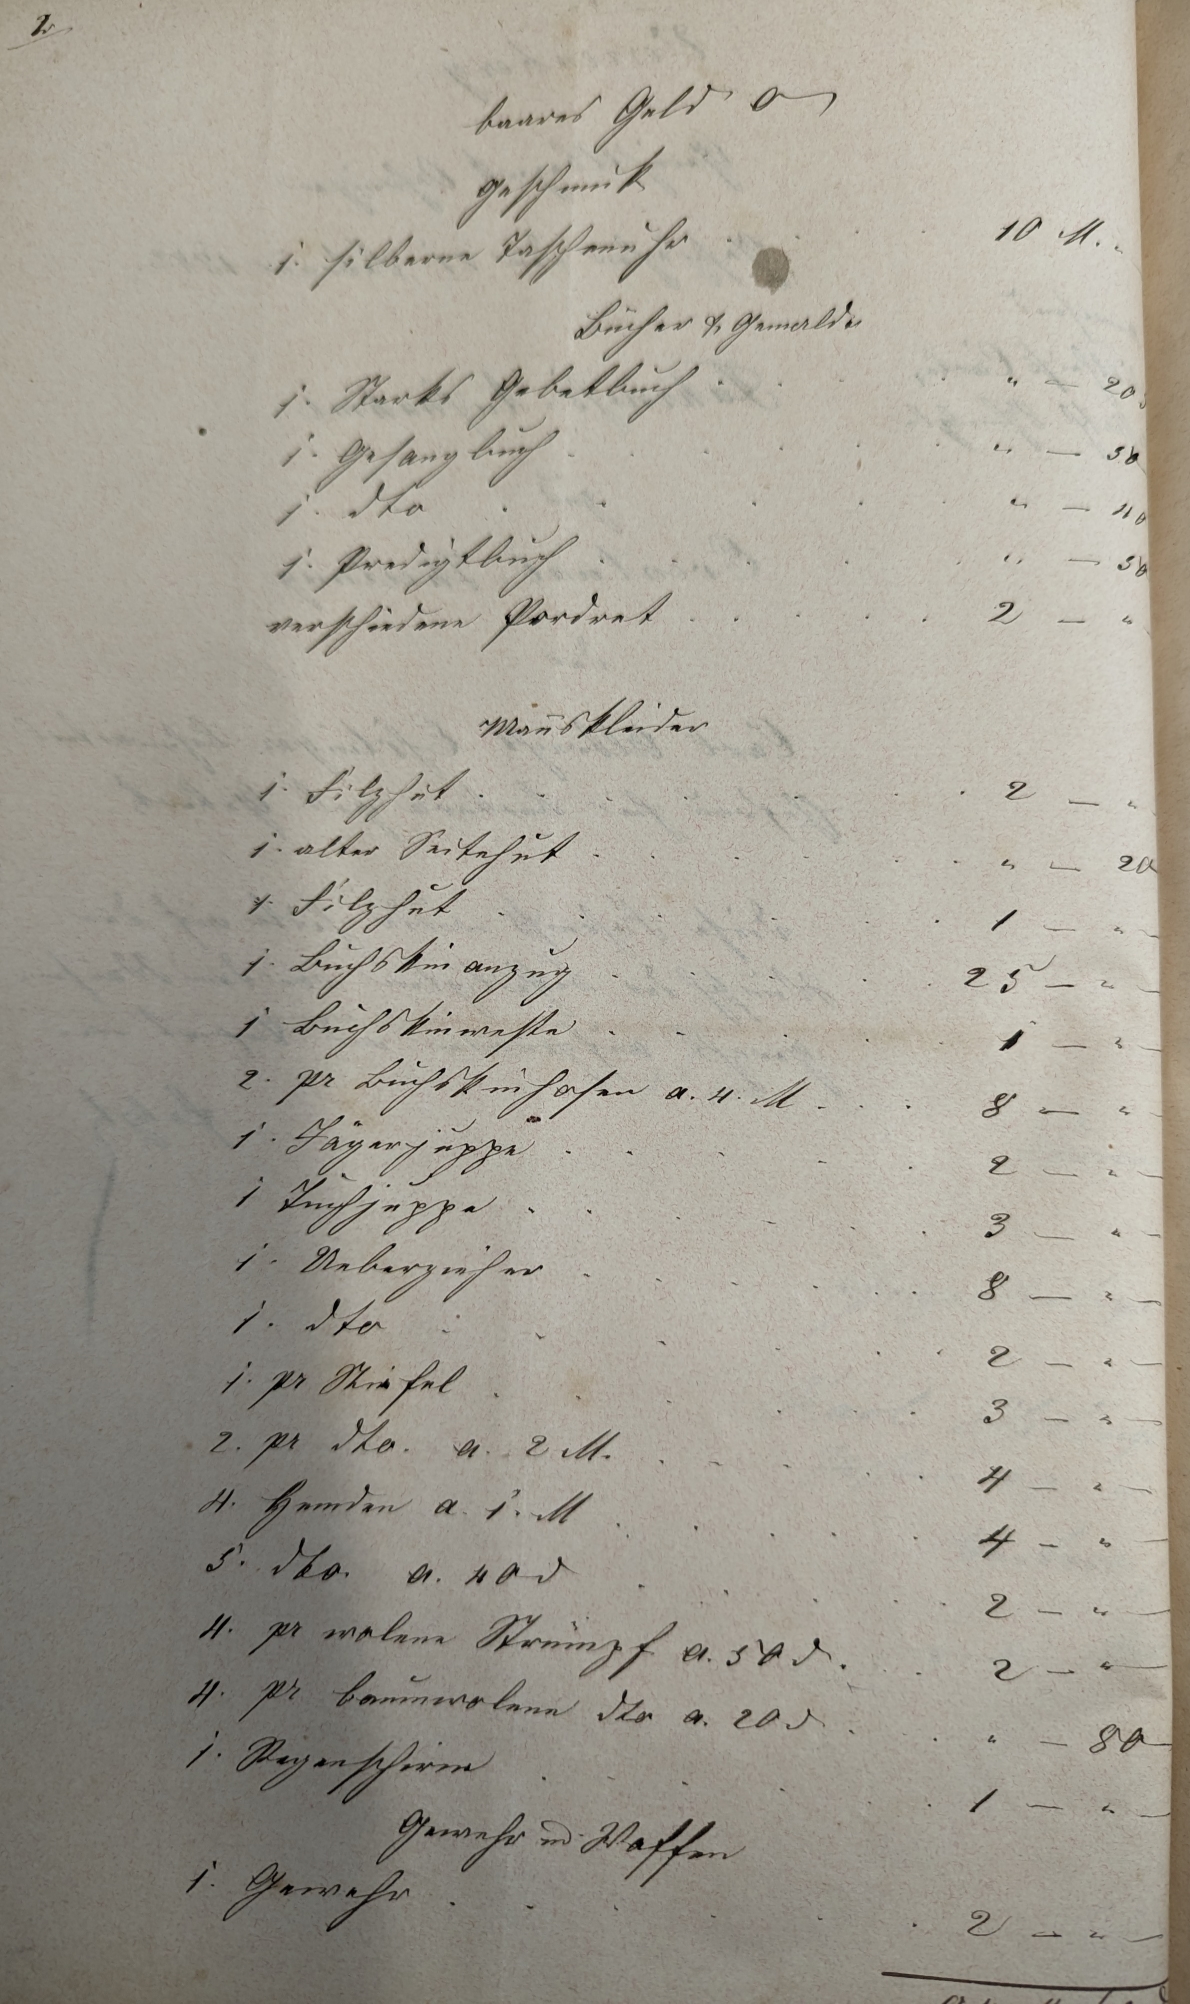 2.
baares Geld 0
Geschmuk
1. silberne Taschenuhr . . . 10 M. "
Bücher & Gemalde
1. Starks Gebetbuch . . " — 20
1. Gesangbuch . . . . . " — 50
1. dto . . . . . " — 40
1. Predigtbuch . . . . . " — 50
verschiedene Pordret . . . . . 2 — "
Man̄skleider
1. Filzhut . . . . . . . 2 — "
1. alter Seitehut . . . . . . " — 20
1. Filzhut . . . . . 1 — " —
1. Buchskinanzug . . . . . 25 — " —
1 Buchskinweste . . . . . 1 — " —
2. pr Buchskinhosen a. 4. M . . . 8 — "
1. Jägerjuppe . . . . . 2 — " —
1 Tuchjuppe . . . . . . 3 — " —
1. Ueberzieher . . . . . . 8 — " —
1. dto . . . . . 2 — " —
1. pr Stiefel . . . . . 3 — " —
2. pr dto. a. 2 M. . . . . 4 — " —
4. Hemden a. 1. M . . . . . 4 — " —
5. dto. a. 40 d . . . . . 2 — " —
4. pr wolene Strümpf a. 50 d. . . 2 — " —
4. pr baumwolene dto a. 20 d . . " — 80 —
1. Regenschirm . . . . . 1 — " —
Gewehr u̅d. Waffen
1. Gewehr . . . . . 2 — " —